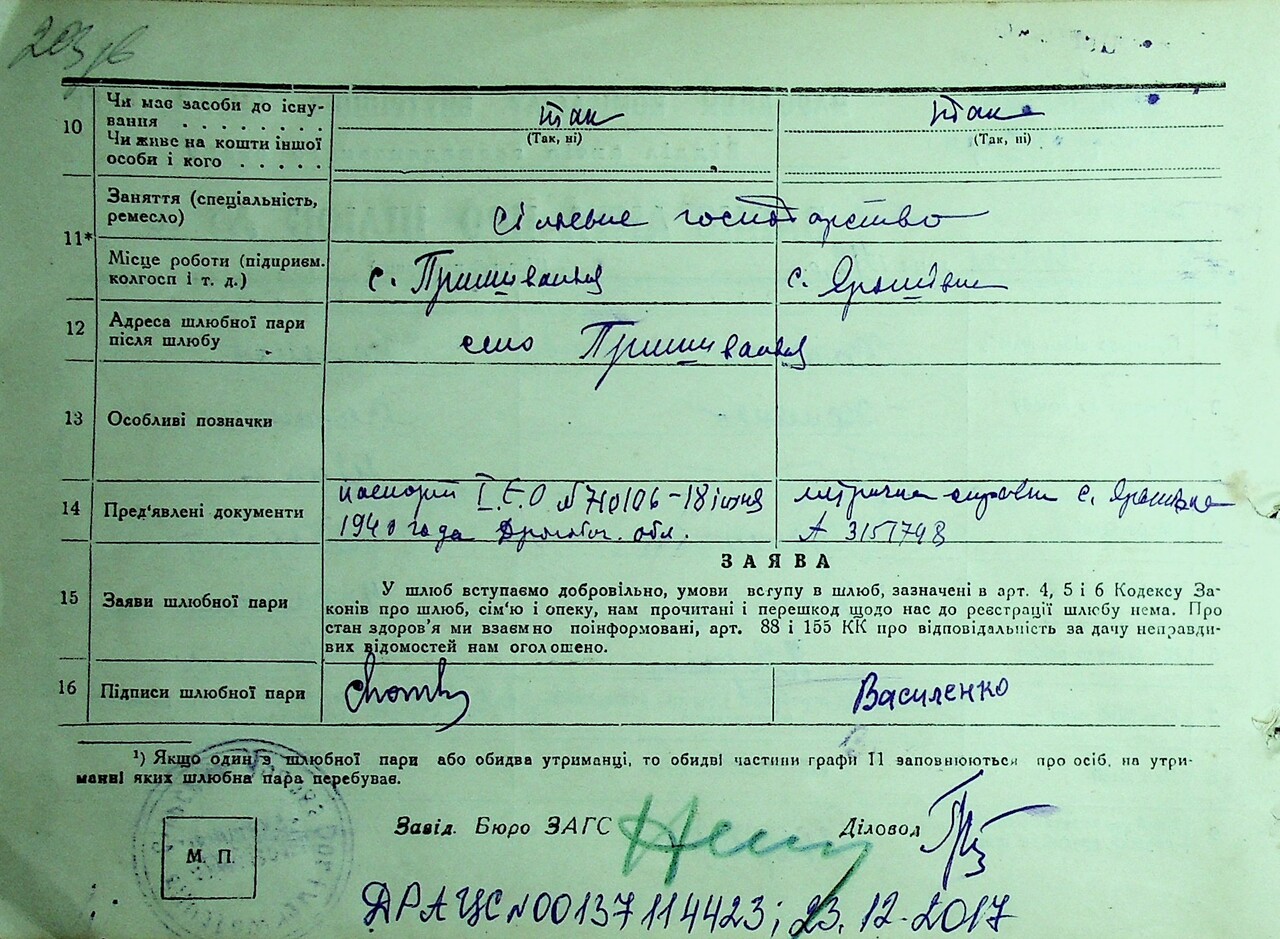 10
Чи має засоби до існу-
вання . . . . . . . .
Чи живе на кошти іншої
особи і кого . . . . .
так
(Так, ні)
так
(Так, ні)
11*
Заняття (спеціальність,
ремесло)
сільське господарство
Місце роботи (підприєм.
колгосп і т. д.)
с. Пришивальня
с. Ярошівка
12
Адреса шлюбної пари
після шлюбу
село Пришивальня
13
Особливі позначки
14
Пред'явлені документи
паспорт І.Е.О №710106 - 18 июня
1940 года Дрогобич. обл.
метрична справка с. Ярошівка
А 3151748
ЗАЯВА
15
Заяви шлюбної пари
У шлюб вступаємо добровільно, умови вступу в шлюб, зазначені в арт. 4, 5 і 6 Кодексу За-
конів про шлюб, сім'ю і опеку, нам прочитані і перешкод щодо нас до реєстрації шлюбу нема. Про
стан здоров'я ми взаємно поінформовані, арт. 88 і 155 КК про відповідальність за дачу неправди-
вих відомостей нам оголошено.
16
Підписи шлюбної пари
Василенко
¹) Якщо один з шлюбної пари або обидва утриманці, то обидві частини графи 11 заповнюються про осіб, на утри-
манні яких шлюбна пара перебуває.
Завід. Бюро ЗАГС
Діловод
М. П.
ДРАЦС №00137114423; 23.12.2017